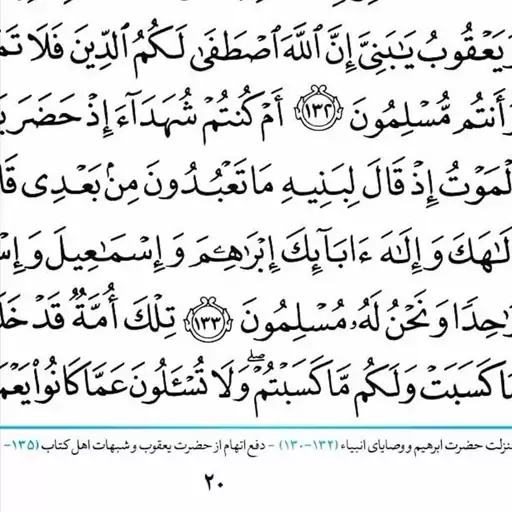 وَيَعْقُوبُ يَٰبَنِىَّ إِنَّ ٱللَّهَ ٱصْطَفَىٰ لَكُمُ ٱلدِّينَ فَلَا
وَأَنتُم مُّسْلِمُونَ ﴿١٣٢﴾ أَمْ كُنتُمْ شُهَدَآءَ إِذْ حَضَرَ
ٱلْمَوْتُ إِذْ قَالَ لِبَنِيهِ مَا تَعْبُدُونَ مِنۢ بَعْدِى
إِلَٰهَكَ وَإِلَٰهَ ءَابَآئِكَ إِبْرَٰهِۦمَ وَإِسْمَٰعِيلَ
وَٰحِدًا وَنَحْنُ لَهُۥ مُسْلِمُونَ ﴿١٣٣﴾ تِلْكَ أُمَّةٌ قَدْ
مَا كَسَبَتْ وَلَكُم مَّا كَسَبْتُمْ ۖ وَلَا تُسْـَٔلُونَ عَمَّا كَانُوا۟
منزلت حضرت ابرهیم و وصایای انبیاء (۱۳۲-۱۳۰) - دفع اتهام از حضرت یعقوب و شبهات اهل کتاب (۱۳۵-
۲۰